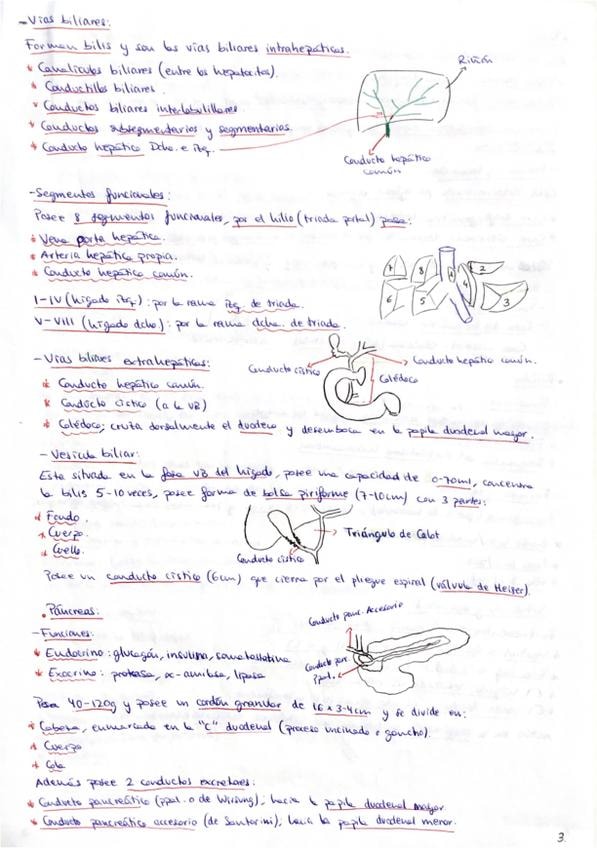 - Vías biliares:
Forman bilis y son las vías biliares intrahepáticas.
* Canalículos biliares (entre los hepatocitos).
* Conductillos biliares.
* Conductos biliares interlobulillares.
* Conductos subsegmentarios y segmentarios.
* Conducto hepático Dcho. e izq.
Riñón
Conducto hepático
común
- Segmentos funcionales:
Posee 8 segmentos funcionales, por el hilio (triada portal) pasa:
* Vena porta hepática.
* Arteria hepática propia.
* Conducto hepático común.
I-IV (hígado izq.): por la rama izq. de triada.
V-VIII (hígado dcho.): por la rama dcha. de triada.
7 8 1 4 2
6 5 3
- Vías biliares extrahepáticas:
* Conducto hepático común.
* Conducto cístico (a la VB)
* Colédoco; cruza dorsalmente el duodeno y desemboca en la papila duodenal mayor.
Conducto cístico
Conducto hepático común.
Colédoco
- Vesícula biliar:
Esta situada en la fosa VB del hígado, posee una capacidad de 0-70ml, concentra
la bilis 5-10 veces, posee forma de bolsa piriforme (7-10cm) con 3 partes:
* Fondo.
* Cuerpo
* Cuello.
Triángulo de Calot
Conducto cístico
Posee un conducto cístico (6cm) que cierra por el pliegue espiral (válvula de Heister).
• Páncreas:
- Funciones:
* Endocrino: glucagón, insulina, somatostatina
* Exocrino: proteasa, α-amilasa, lipasa
Conducto panc. Accesorio
Conducto pan.
ppal.
Pesa 40-120g y posee un cordón granular de 16 x 3-4cm y se divide en:
* Cabeza, enmarcada en la "C" duodenal (proceso uncinado o gancho).
* Cuerpo
* Cola
Además posee 2 conductos excretores:
* Conducto pancreático (ppal. o de Wirsung); hacia la papila duodenal mayor.
* Conducto pancreático accesorio (de Santorini); hacia la papila duodenal menor.
3.